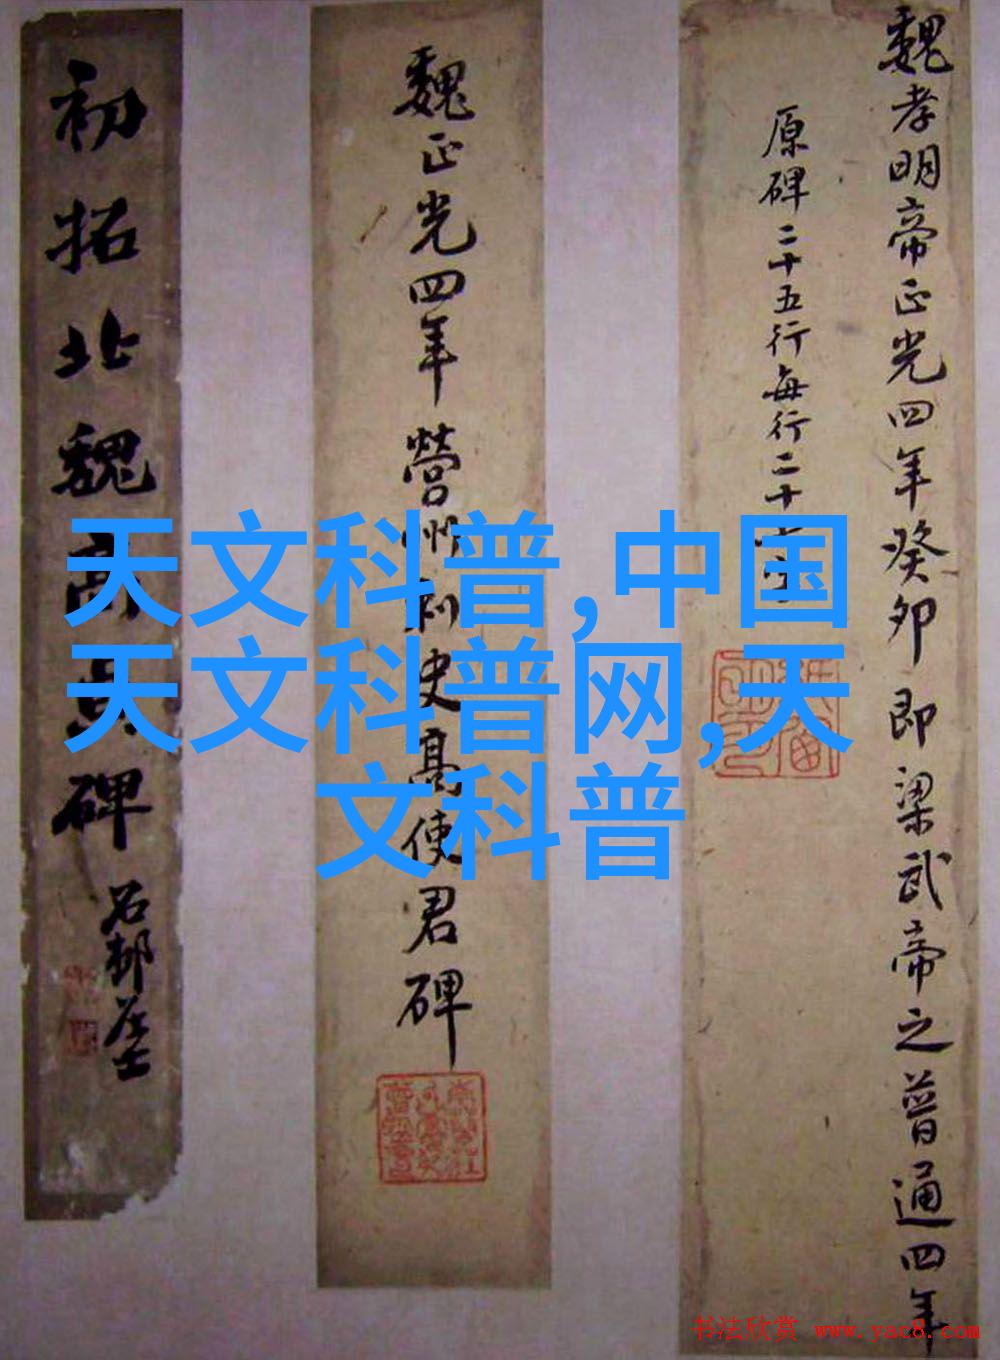 魏孝明帝正光四年癸卯即梁武帝之普通四年
原碑二十五行每行二十
魏正光四年營州刺史高使君碑
初拓北魏高貞碑
天文科普,中国
天文科普网,天
文科普
书法欣赏 www.yac8.com